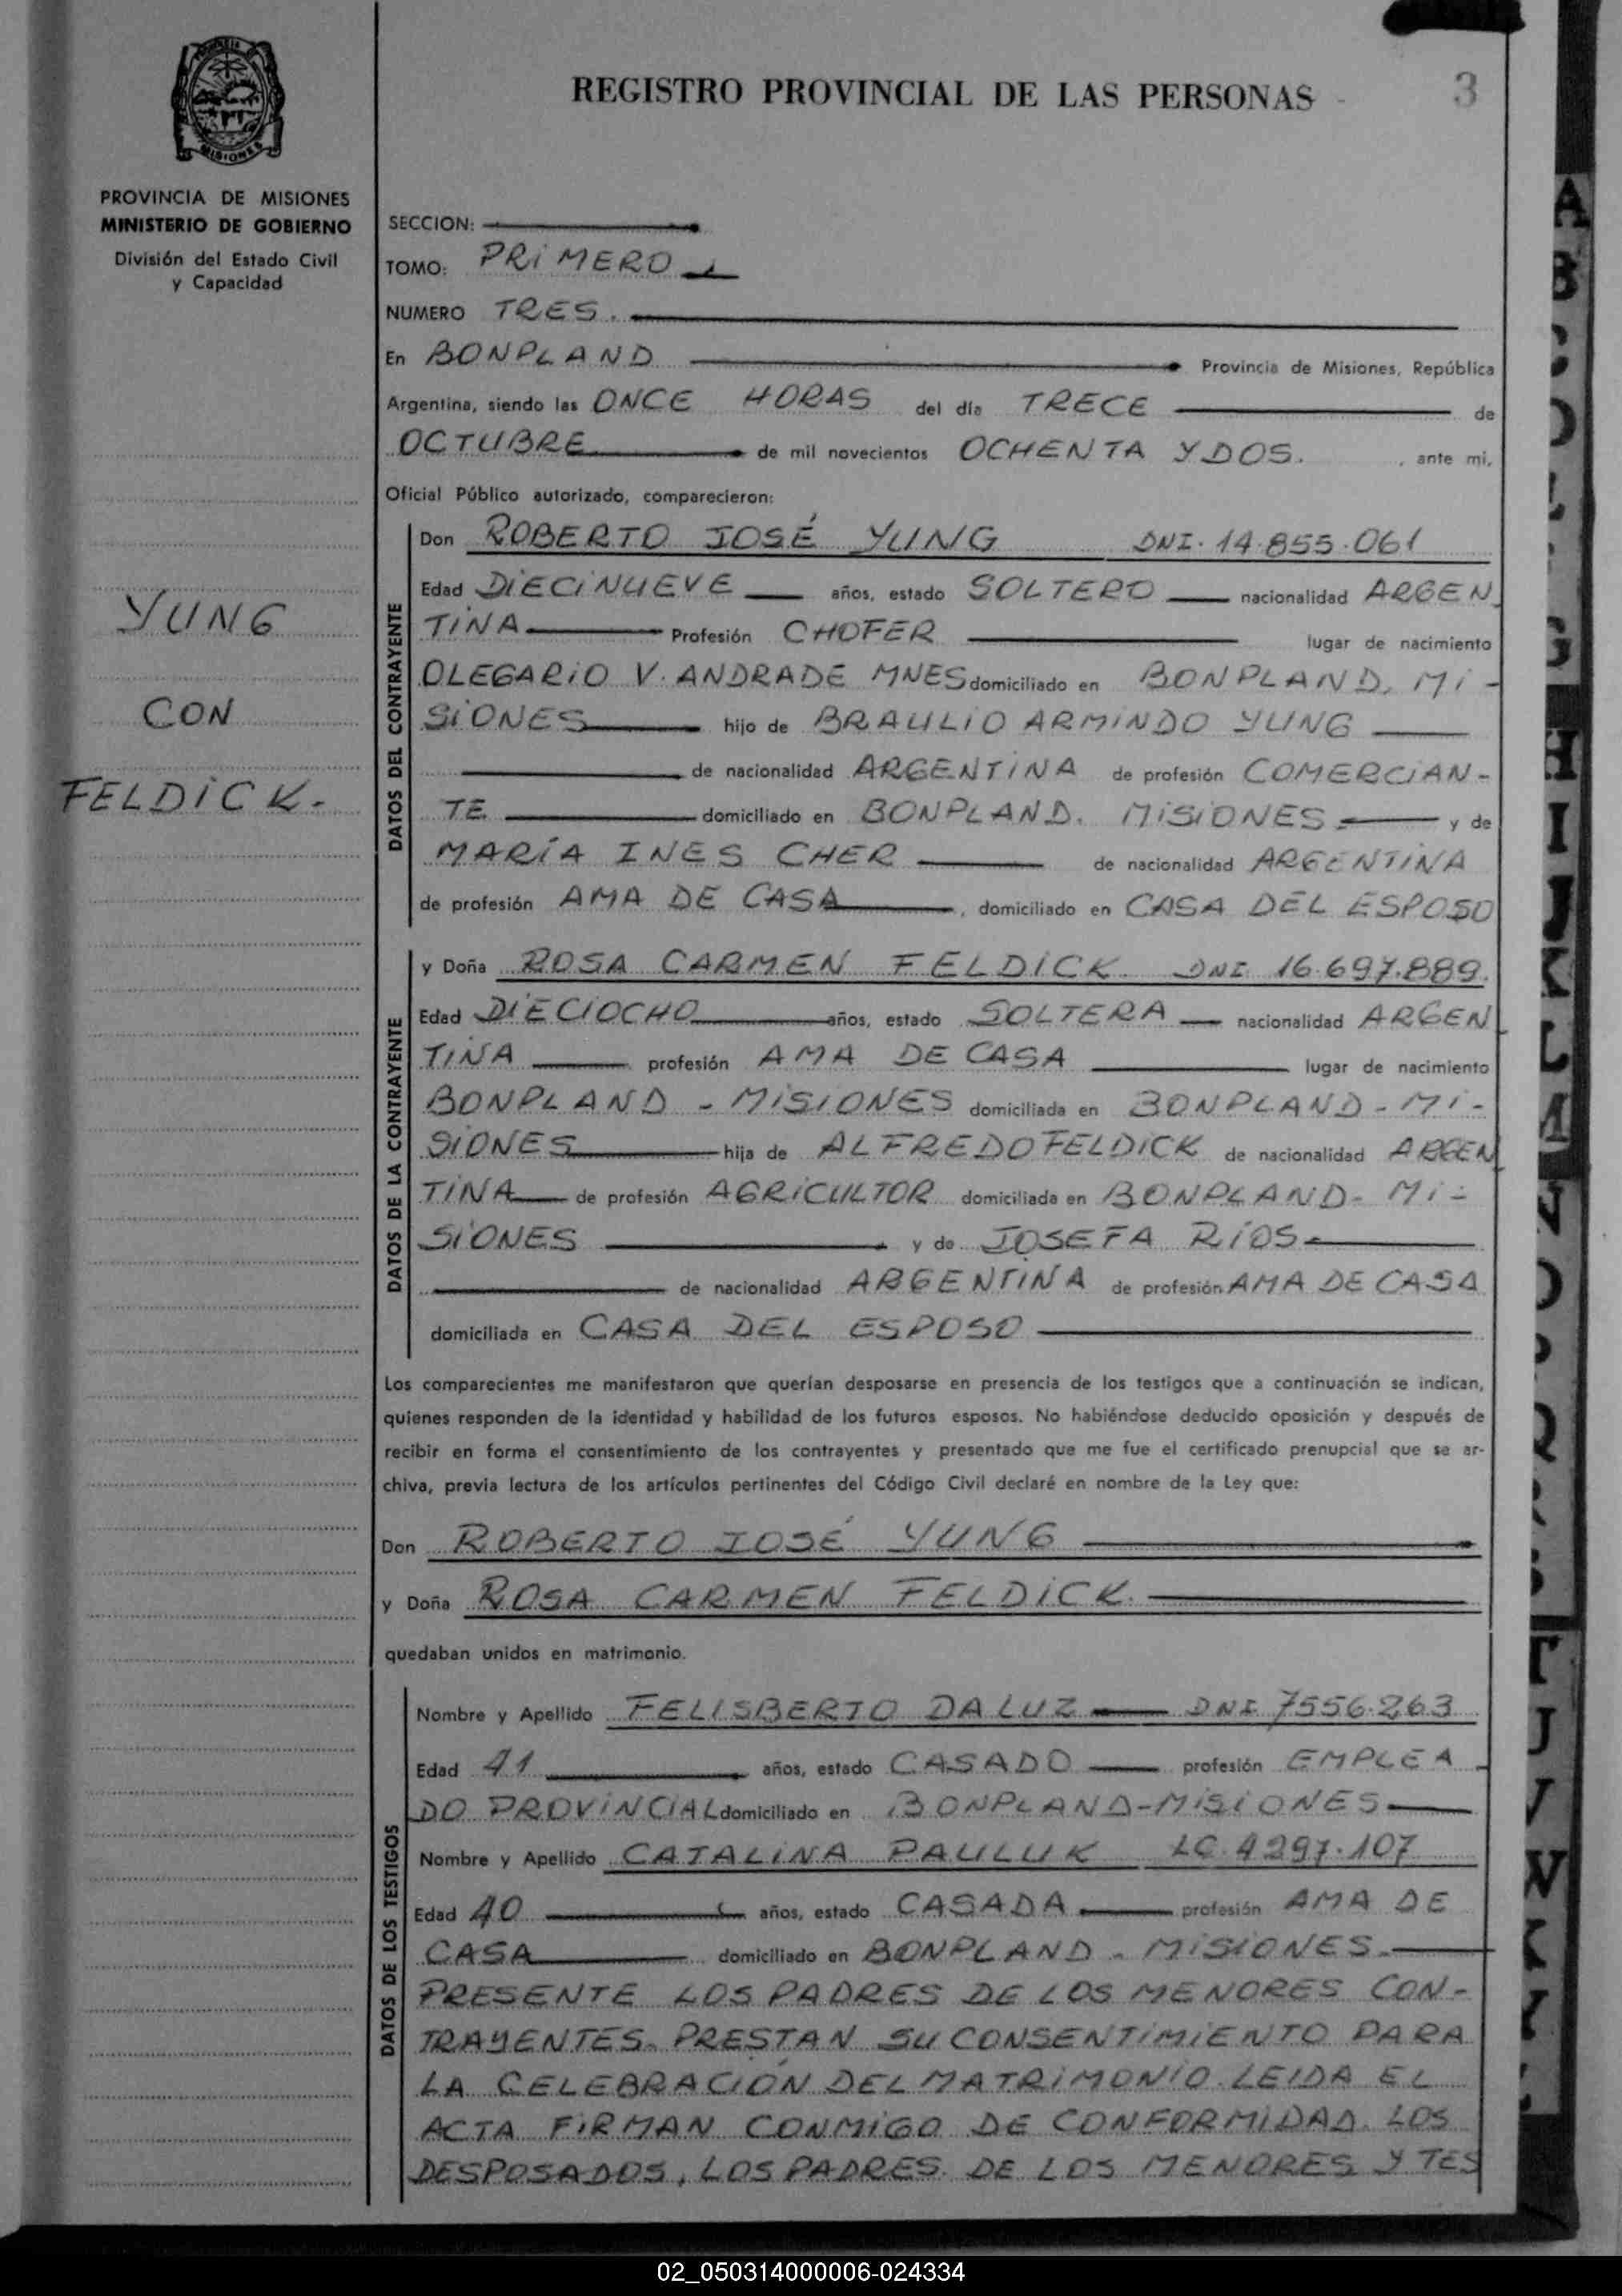 REGISTRO PROVINCIAL DE LAS PERSONAS
3
MISIONES
PROVINCIA DE MISIONES
MINISTERIO DE GOBIERNO
División del Estado Civil
y Capacidad
YUNG
CON
FELDICK.-
SECCION:
TOMO: PRIMERO
NUMERO TRES.
En BONPLAND Provincia de Misiones, República
Argentina, siendo las ONCE HORAS del día TRECE de
OCTUBRE de mil novecientos OCHENTA Y DOS. , ante mi,
Oficial Público autorizado, comparecieron:
DATOS DEL CONTRAYENTE
Don ROBERTO JOSÉ YUNG DNI. 14.855.061
Edad DIECINUEVE años, estado SOLTERO nacionalidad ARGEN
TINA Profesión CHOFER lugar de nacimiento
OLEGARIO V. ANDRADE MNES domiciliado en BONPLAND, MI-
SIONES hijo de BRAULIO ARMINDO YUNG
de nacionalidad ARGENTINA de profesión COMERCIAN-
TE domiciliado en BONPLAND. MISIONES y de
MARÍA INES CHER de nacionalidad ARGENTINA
de profesión AMA DE CASA , domiciliado en CASA DEL ESPOSO
DATOS DE LA CONTRAYENTE
y Doña ROSA CARMEN FELDICK DNI 16.697.889.
Edad DIECIOCHO años, estado SOLTERA nacionalidad ARGEN
TINA profesión AMA DE CASA lugar de nacimiento
BONPLAND - MISIONES domiciliada en BONPLAND - MI-
SIONES hija de ALFREDO FELDICK de nacionalidad ARGEN
TINA de profesión AGRICULTOR domiciliada en BONPLAND - MI-
SIONES y de JOSEFA RÍOS.
de nacionalidad ARGENTINA de profesión AMA DE CASA
domiciliada en CASA DEL ESPOSO
Los comparecientes me manifestaron que querían desposarse en presencia de los testigos que a continuación se indican,
quienes responden de la identidad y habilidad de los futuros esposos. No habiéndose deducido oposición y después de
recibir en forma el consentimiento de los contrayentes y presentado que me fue el certificado prenupcial que se ar-
chiva, previa lectura de los artículos pertinentes del Código Civil declaré en nombre de la Ley que:
Don ROBERTO JOSÉ YUNG
y Doña ROSA CARMEN FELDICK.
quedaban unidos en matrimonio.
DATOS DE LOS TESTIGOS
Nombre y Apellido FELISBERTO DA LUZ DNI 7556.263
Edad 41 años, estado CASADO profesión EMPLEA
DO PROVINCIAL domiciliado en BONPLAND-MISIONES
Nombre y Apellido CATALINA PAULUK LC. 4297.107
Edad 40 años, estado CASADA profesión AMA DE
CASA domiciliado en BONPLAND - MISIONES
PRESENTE LOS PADRES DE LOS MENORES CON-
TRAYENTES. PRESTAN SU CONSENTIMIENTO PARA
LA CELEBRACIÓN DEL MATRIMONIO. LEIDA EL
ACTA FIRMAN CONMIGO DE CONFORMIDAD. LOS
DESPOSADOS, LOS PADRES DE LOS MENORES Y TES
02_050314000006-024334